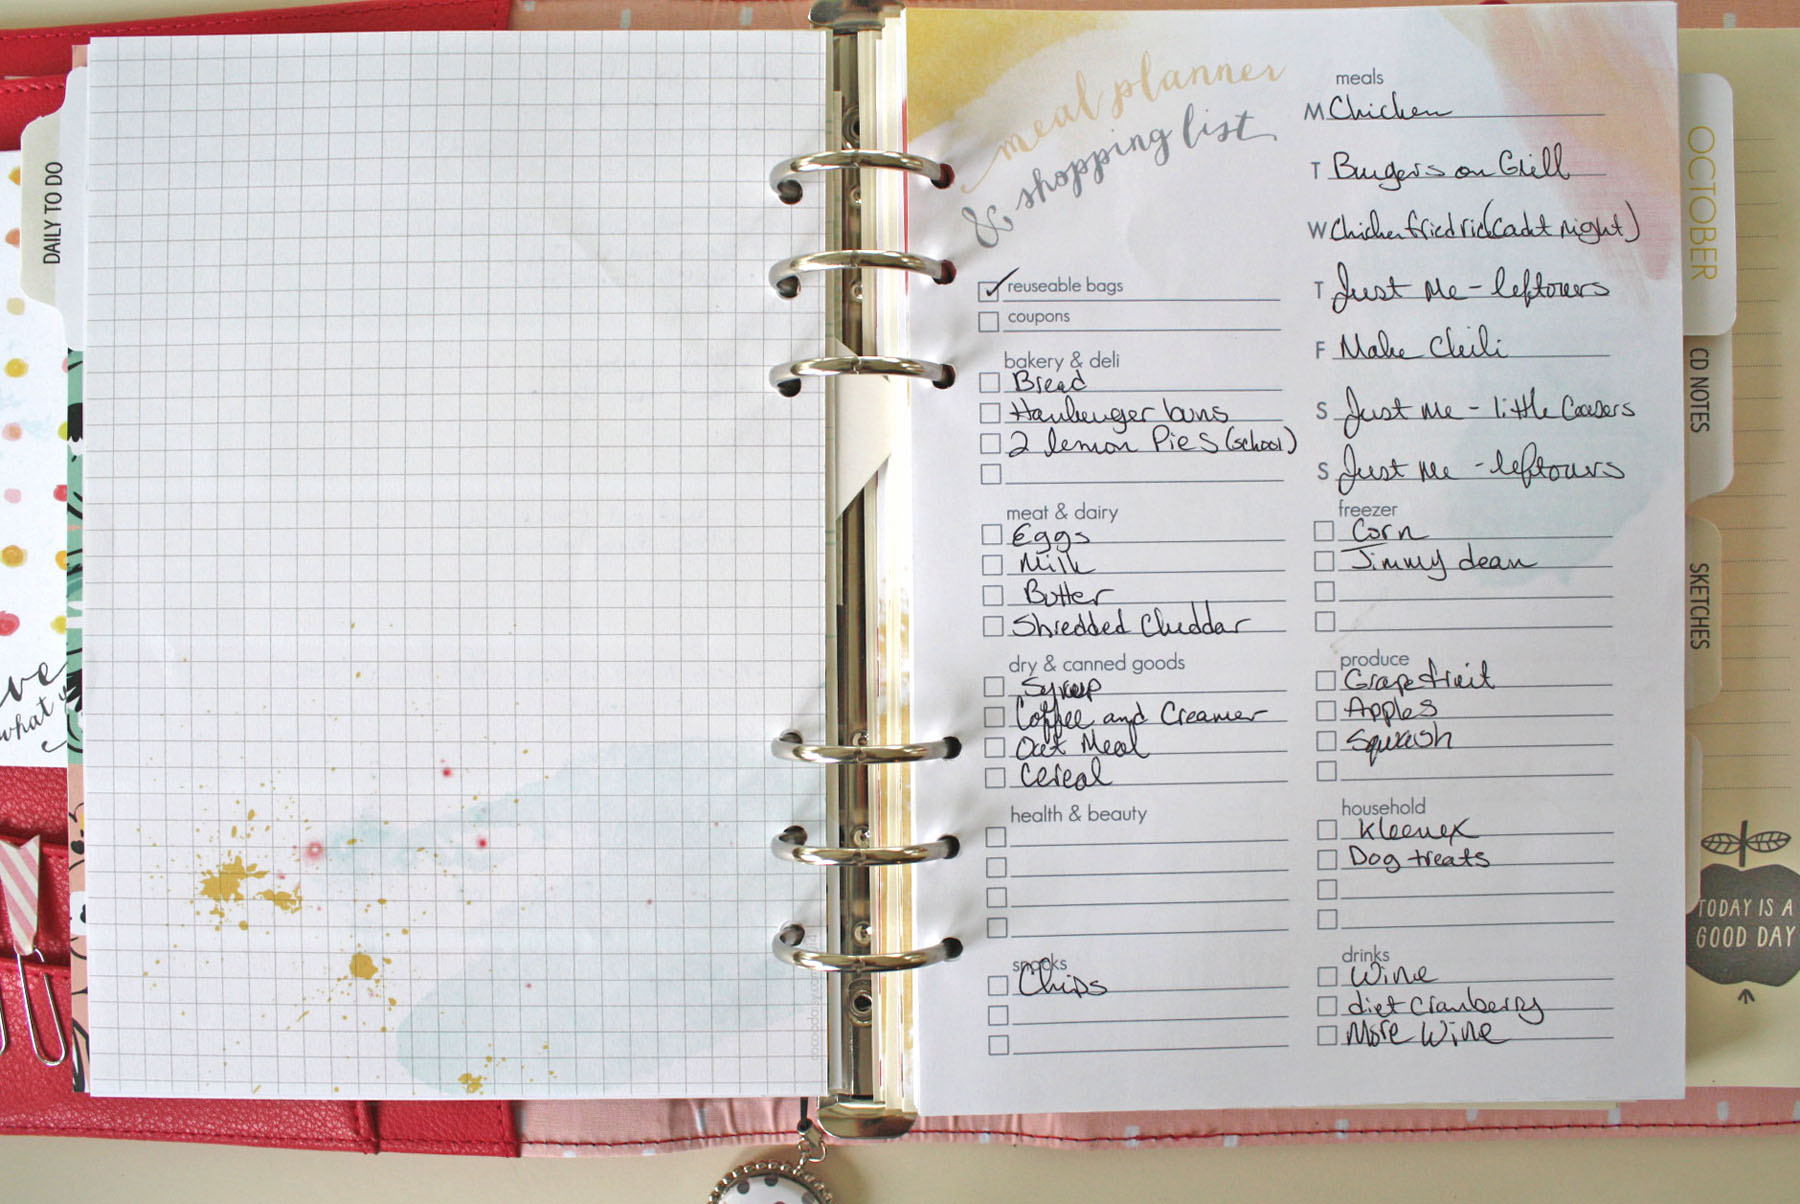 DAILY TO DO
what
meal planner
& shopping list
reuseable bags
coupons
bakery & deli
Bread
Hamburger buns
2 lemon Pies (school)
meat & dairy
Eggs
Milk
Butter
Shredded Cheddar
dry & canned goods
Syrup
Coffee and Creamer
Oat Meal
Cereal
health & beauty
snacks
Chips
meals
M Chicken
T Burgers on Grill
W Chicken fried rice (cadt night)
T Just Me - leftovers
F Make Chili
S Just Me - little Ceasers
S Just Me - leftovers
freezer
Corn
Jimmy dean
produce
Grapefruit
Apples
Squash
household
Kleenex
Dog treats
drinks
Wine
diet Cranberry
More Wine
OCTOBER
CD NOTES
SKETCHES
TODAY IS A
GOOD DAY